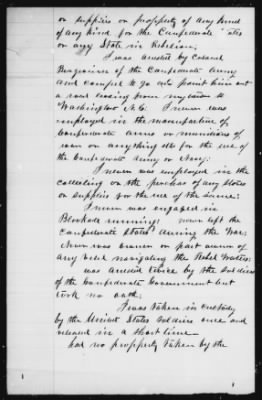 or supplies or property of any kind
of any kind for the Confederate ates
or any State in Rebelion.
I was arrested by Colonel
of the Confederate Army
and compeld to go and point him out
a road leading from my
Washington N.C. I never was
employed in the manufacture of
Confederate arms or munitions of
war or anything els for the use of
the Confederate Army or Navy.
I never was employed in the
collecting or the purchas of any stores
or supplies for the use of the same.
I never was engaged in
Blockade running. never left the
Confederate States during the War.
Never was owner or part owner of
any vessel navigating the Rebel Waters.
was arrested twice by the Soldiers
of the Confederate Government but
took no oath.
I was taken in custody
by the United States Soldiers once and
released in a short time
had no property taken by the